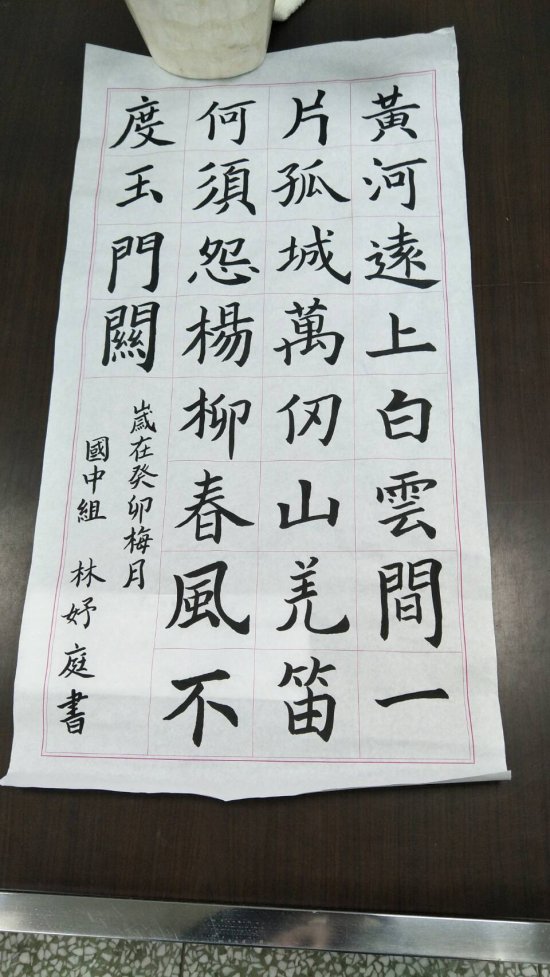 黃河遠上白雲間一
片孤城萬仞山羌笛
何須怨楊柳春風不
度玉門關
歲在癸卯梅月
國中組 林妤庭書